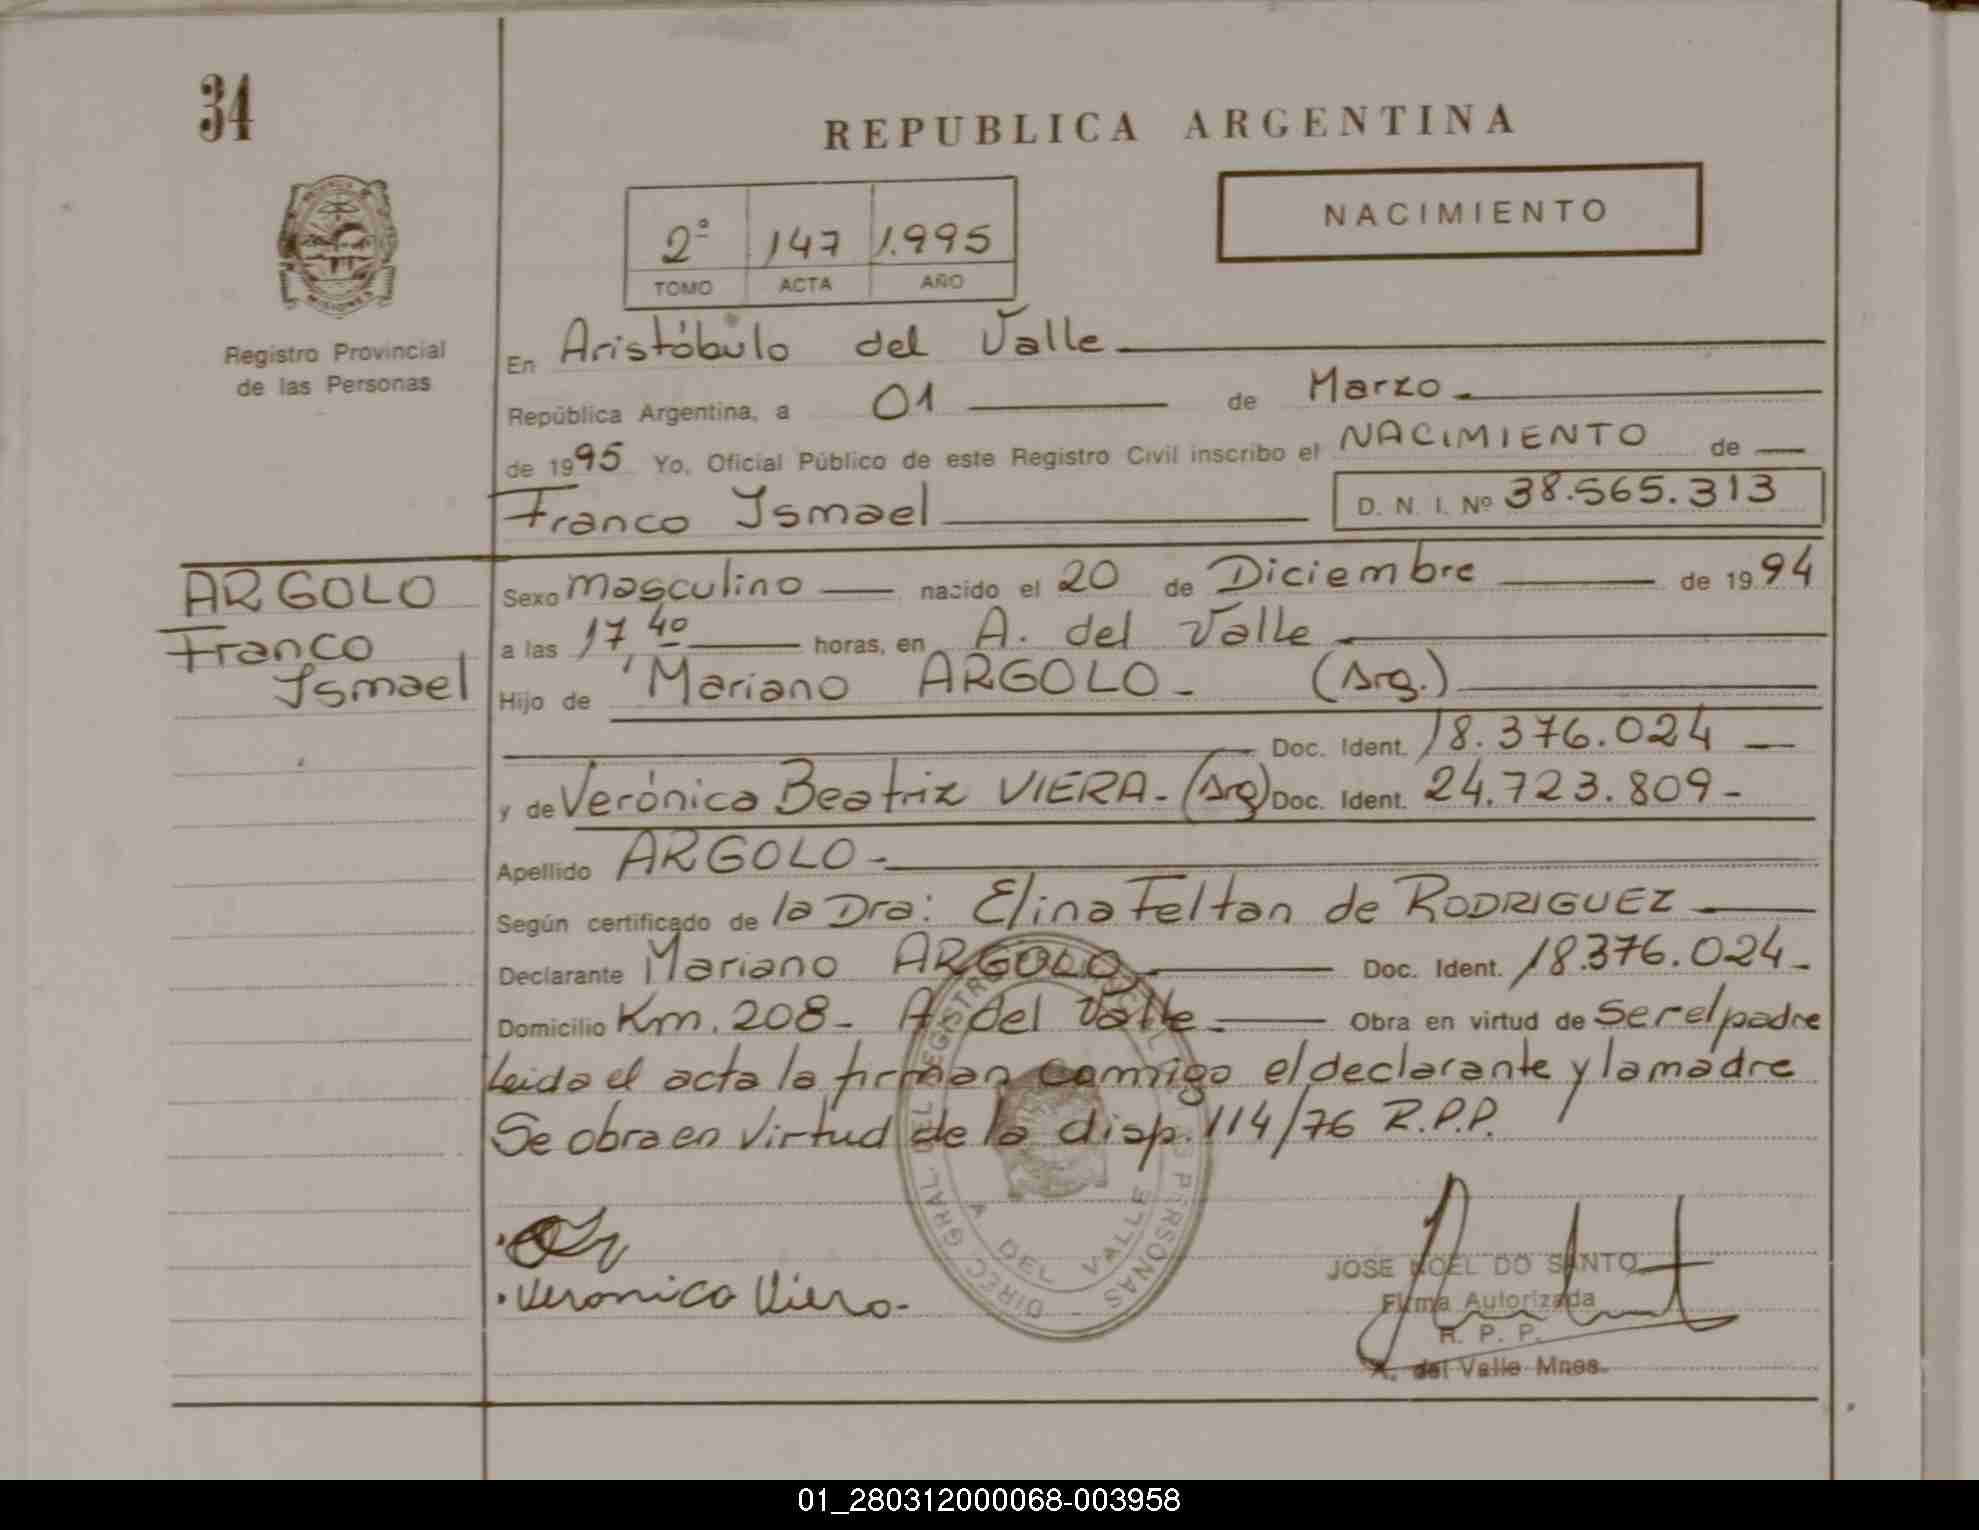 34
REPUBLICA ARGENTINA
NACIMIENTO
2ª 147 1.995
TOMO ACTA AÑO
MISIONES
Registro Provincial
de las Personas
En Aristóbulo del Valle
República Argentina, a 01 de Marzo
de 1995 Yo, Oficial Público de este Registro Civil inscribo el NACIMIENTO de
Franco Ismael D. N. I. Nº 38.565.313
ARGOLO
Franco
Ismael
Sexo masculino nacido el 20 de Diciembre de 1994
a las 17,40 horas, en A. del Valle
Hijo de Mariano ARGOLO - (Arg.)
Doc. Ident. 18.376.024
y de Verónica Beatriz VIERA - (Arg) Doc. Ident. 24.723.809 -
Apellido ARGOLO -
Según certificado de la Dra: Elina Feltan de RODRIGUEZ
Declarante Mariano ARGOLO Doc. Ident. 18.376.024 -
Domicilio Km. 208 - A. del Valle - Obra en virtud de ser el padre
Leida el acta la firman conmigo el declarante y la madre
Se obra en virtud de la disp. 114/76 R.P.P.
DIREC GRAL DEL REGISTRO PROVINCIAL DE LAS PERSONAS -
A DEL VALLE
Veronica Viera -
JOSE NOEL DO SANTO
Firma Autorizada
R. P. P.
A. del Valle Mnes.
01_280312000068-003958